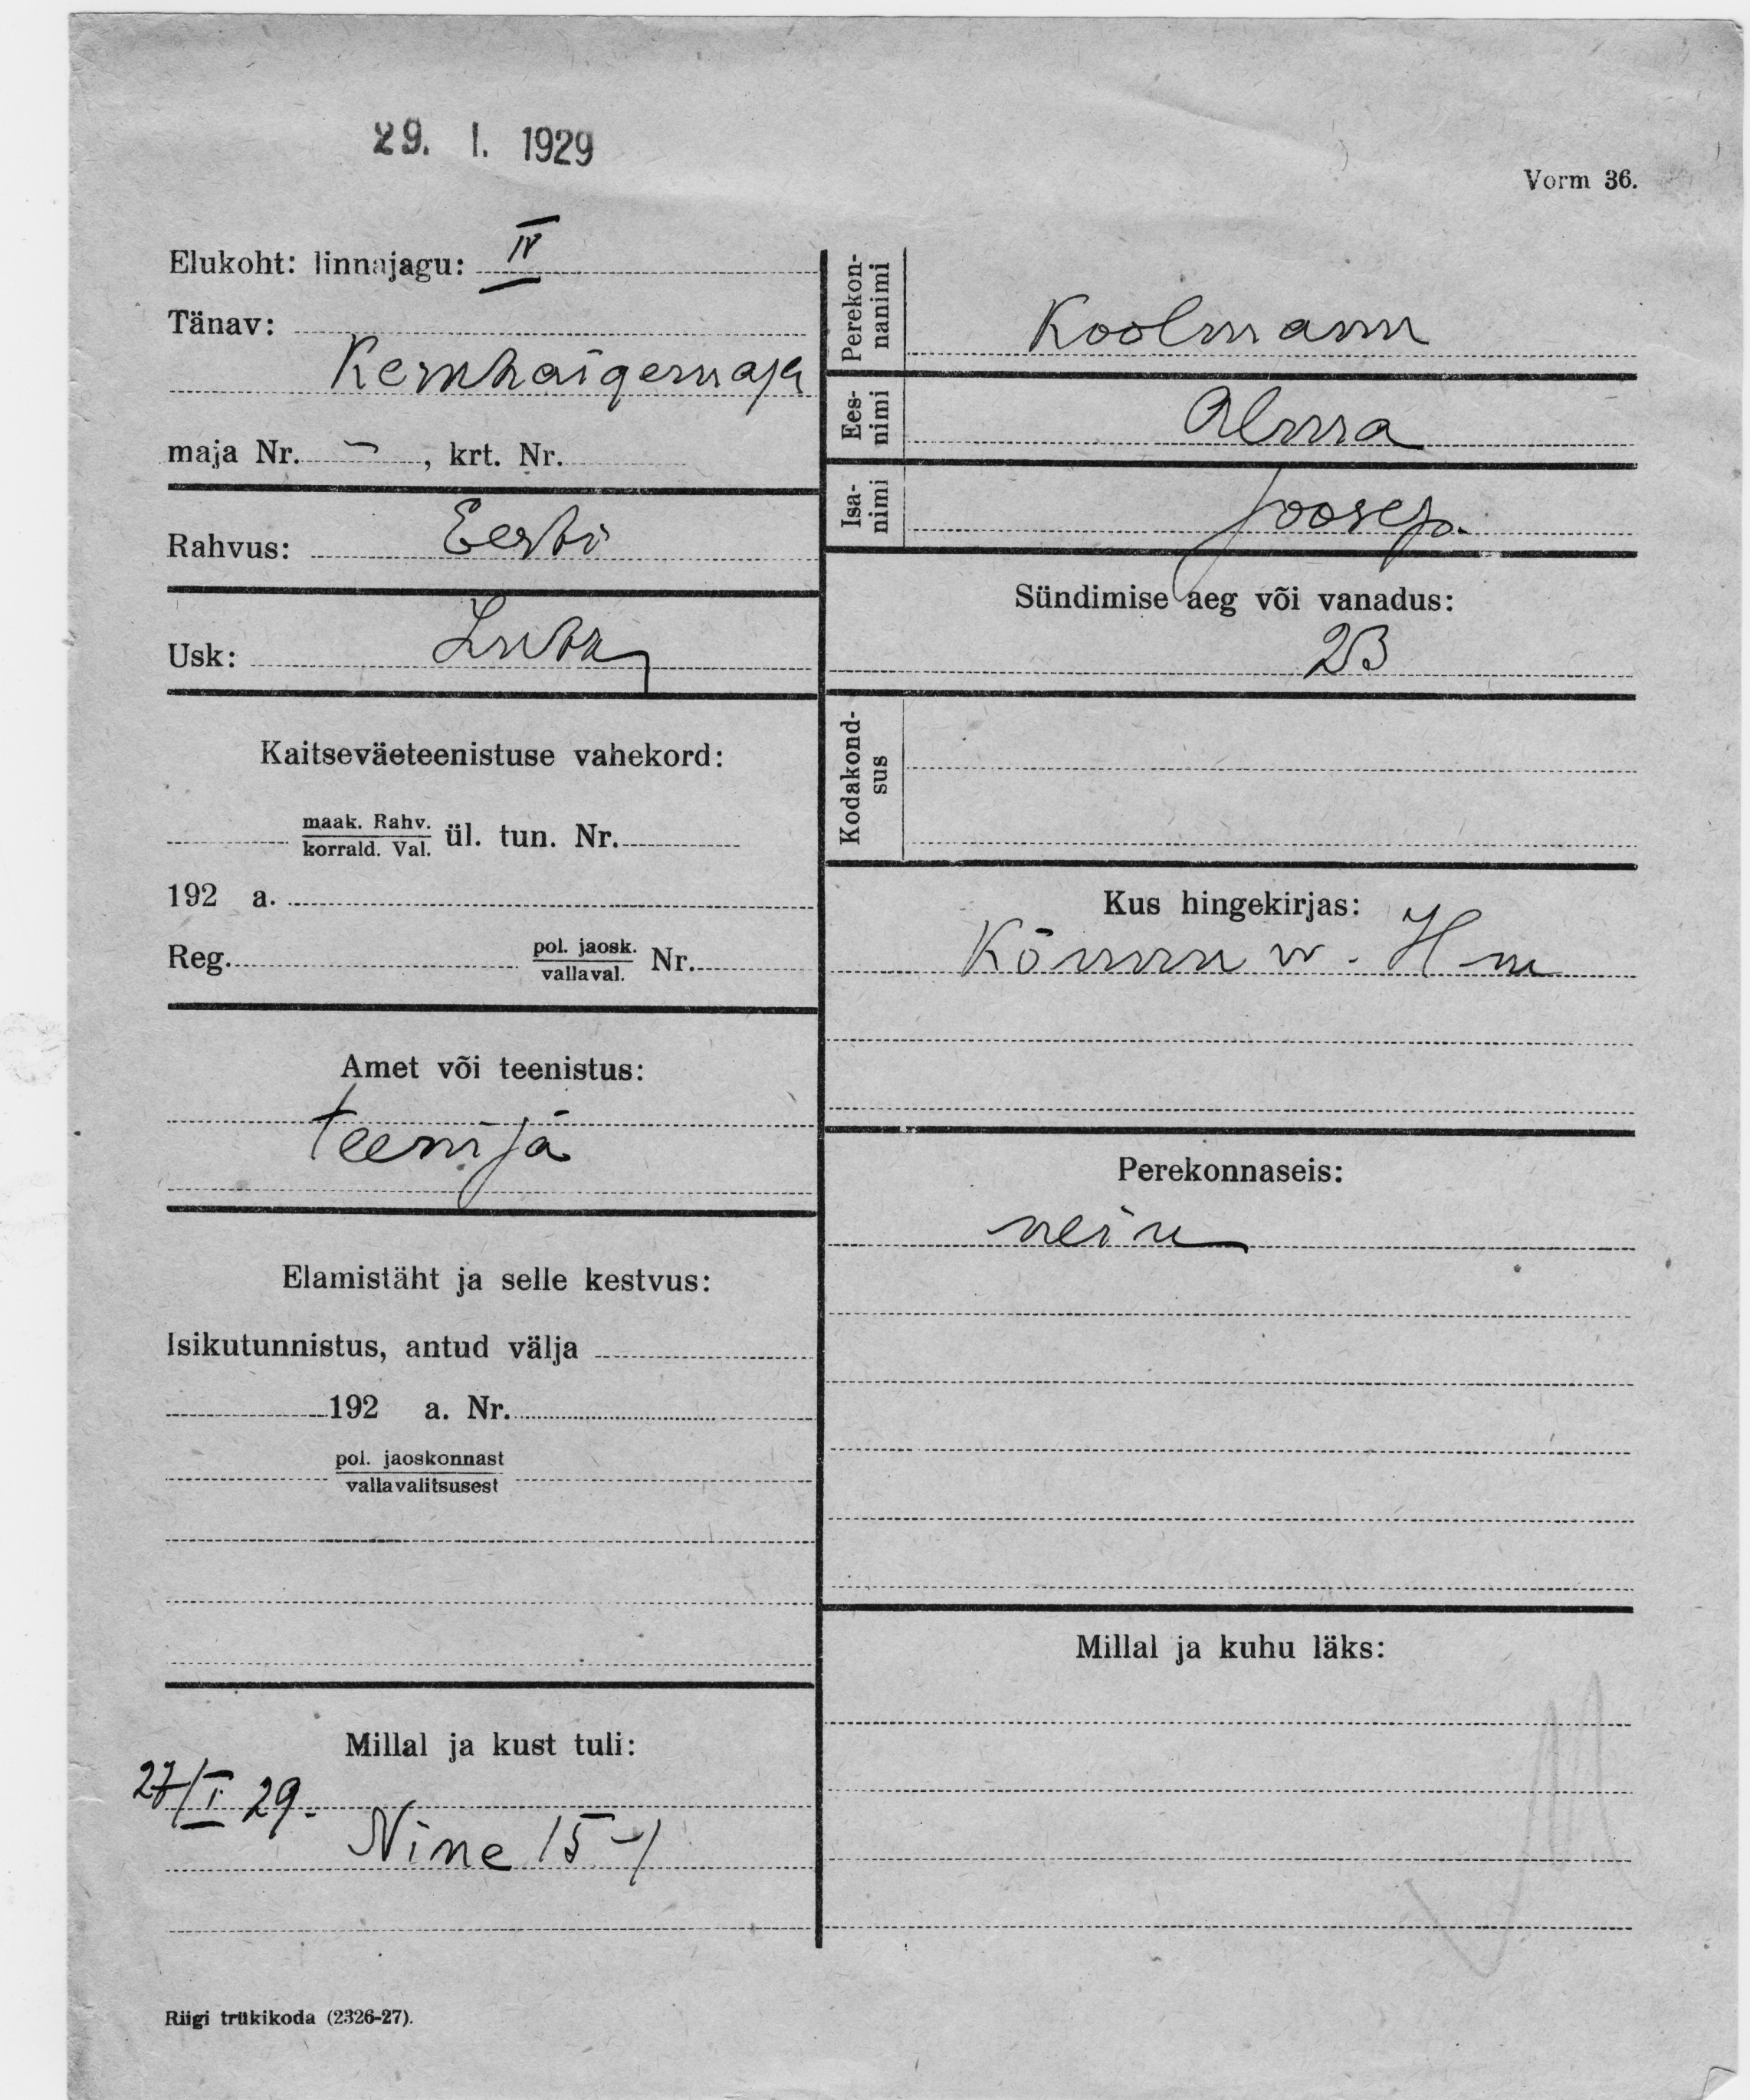 29. I. 1929
Vorm 36.
Elukoht: linnajagu: IV
Tänav:
Kernhaigemaja
maja Nr. – , krt. Nr.
Rahvus: Eesti
Usk: Luth
Kaitseväeteenistuse vahekord:
maak. Rahv.
korrald. Val. ül. tun. Nr.
192 a.
Reg. pol. jaosk.
vallaval. Nr.
Amet või teenistus:
teenija
Elamistäht ja selle kestvus:
Isikutunnistus, antud välja
192 a. Nr.
pol. jaoskonnast
vallavalitsusest
Millal ja kust tuli:
27/I 29.
Nine 15-1
Perekon-
nanimi Koolmann
Ees-
nimi Alma
Isa-
nimi Joosep.
Sündimise aeg või vanadus:
23
Kodakond-
sus
Kus hingekirjas:
Kõmmu v. H-m
Perekonnaseis:
neiu
Millal ja kuhu läks:
Riigi trükikoda (2326-27).